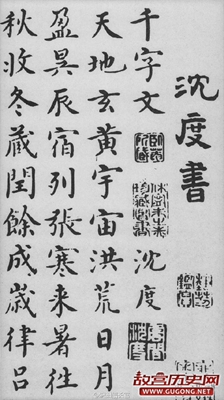 沈度書
千字文 沈度
天地玄黃宇宙洪荒日月
盈昃辰宿列張寒来暑往
秋收冬藏閏餘成歲律吕
故宫历史网